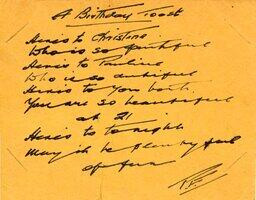 A Birthday Toast
Here's to Christine
Who is so faithful
Here's to Pauline
Who is so dutiful
Here's to you both
You are so beautiful
at 21
Here's to tonight
May it be
of fun